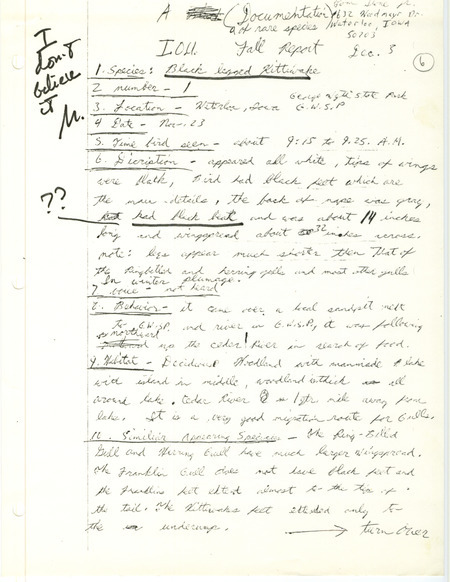 A (Documentation
of rare species)
1632 Woodmayr Dr.
Waterloo, Iowa
50703
I.O.U. Fall Report Dec. 3
6
I
don't
believe
it
M.
1. Species: Black legged Kittiwake
2 number - 1
3. Location - Waterloo, Iowa George Wyth State Park
G.W.S.P
4 Date - Nov. 23
5. Time bird seen - about 9:15 to 9:25. A.M.
6. Discription - appeared all white, tips of wings
were black, Bird had black feet which are
the main details, the back of nape was gray,
??
had black beak and was about 14 inches
long and wingspread about 32 inches across.
note: legs appear much shorter then that of
the Ringbilled and herring gulls and most other gulls
In winter plumage.
7 voice - not heard
8. Behavior - it came over a local sandpit next
to G.W.S.P. and river in G.W.S.P, it was following
northward
up the cedar River in search of food.
9. Habitat - Deciduous Woodland with manmade lake
with island in middle, woodland is thick all
around lake. Cedar River is 1/4 mile away from
lake. It is a very good migration route for Gulls.
10. Similiar Appearing Species - the Ring-Billed
Gull and Herring Gull have much larger wingspread.
The Franklin Gull does not have black feet and
the Franklins feet extend almost to the tip of
the tail. The Kittiwakes feet extended only to
the undercarp.
→ turn over